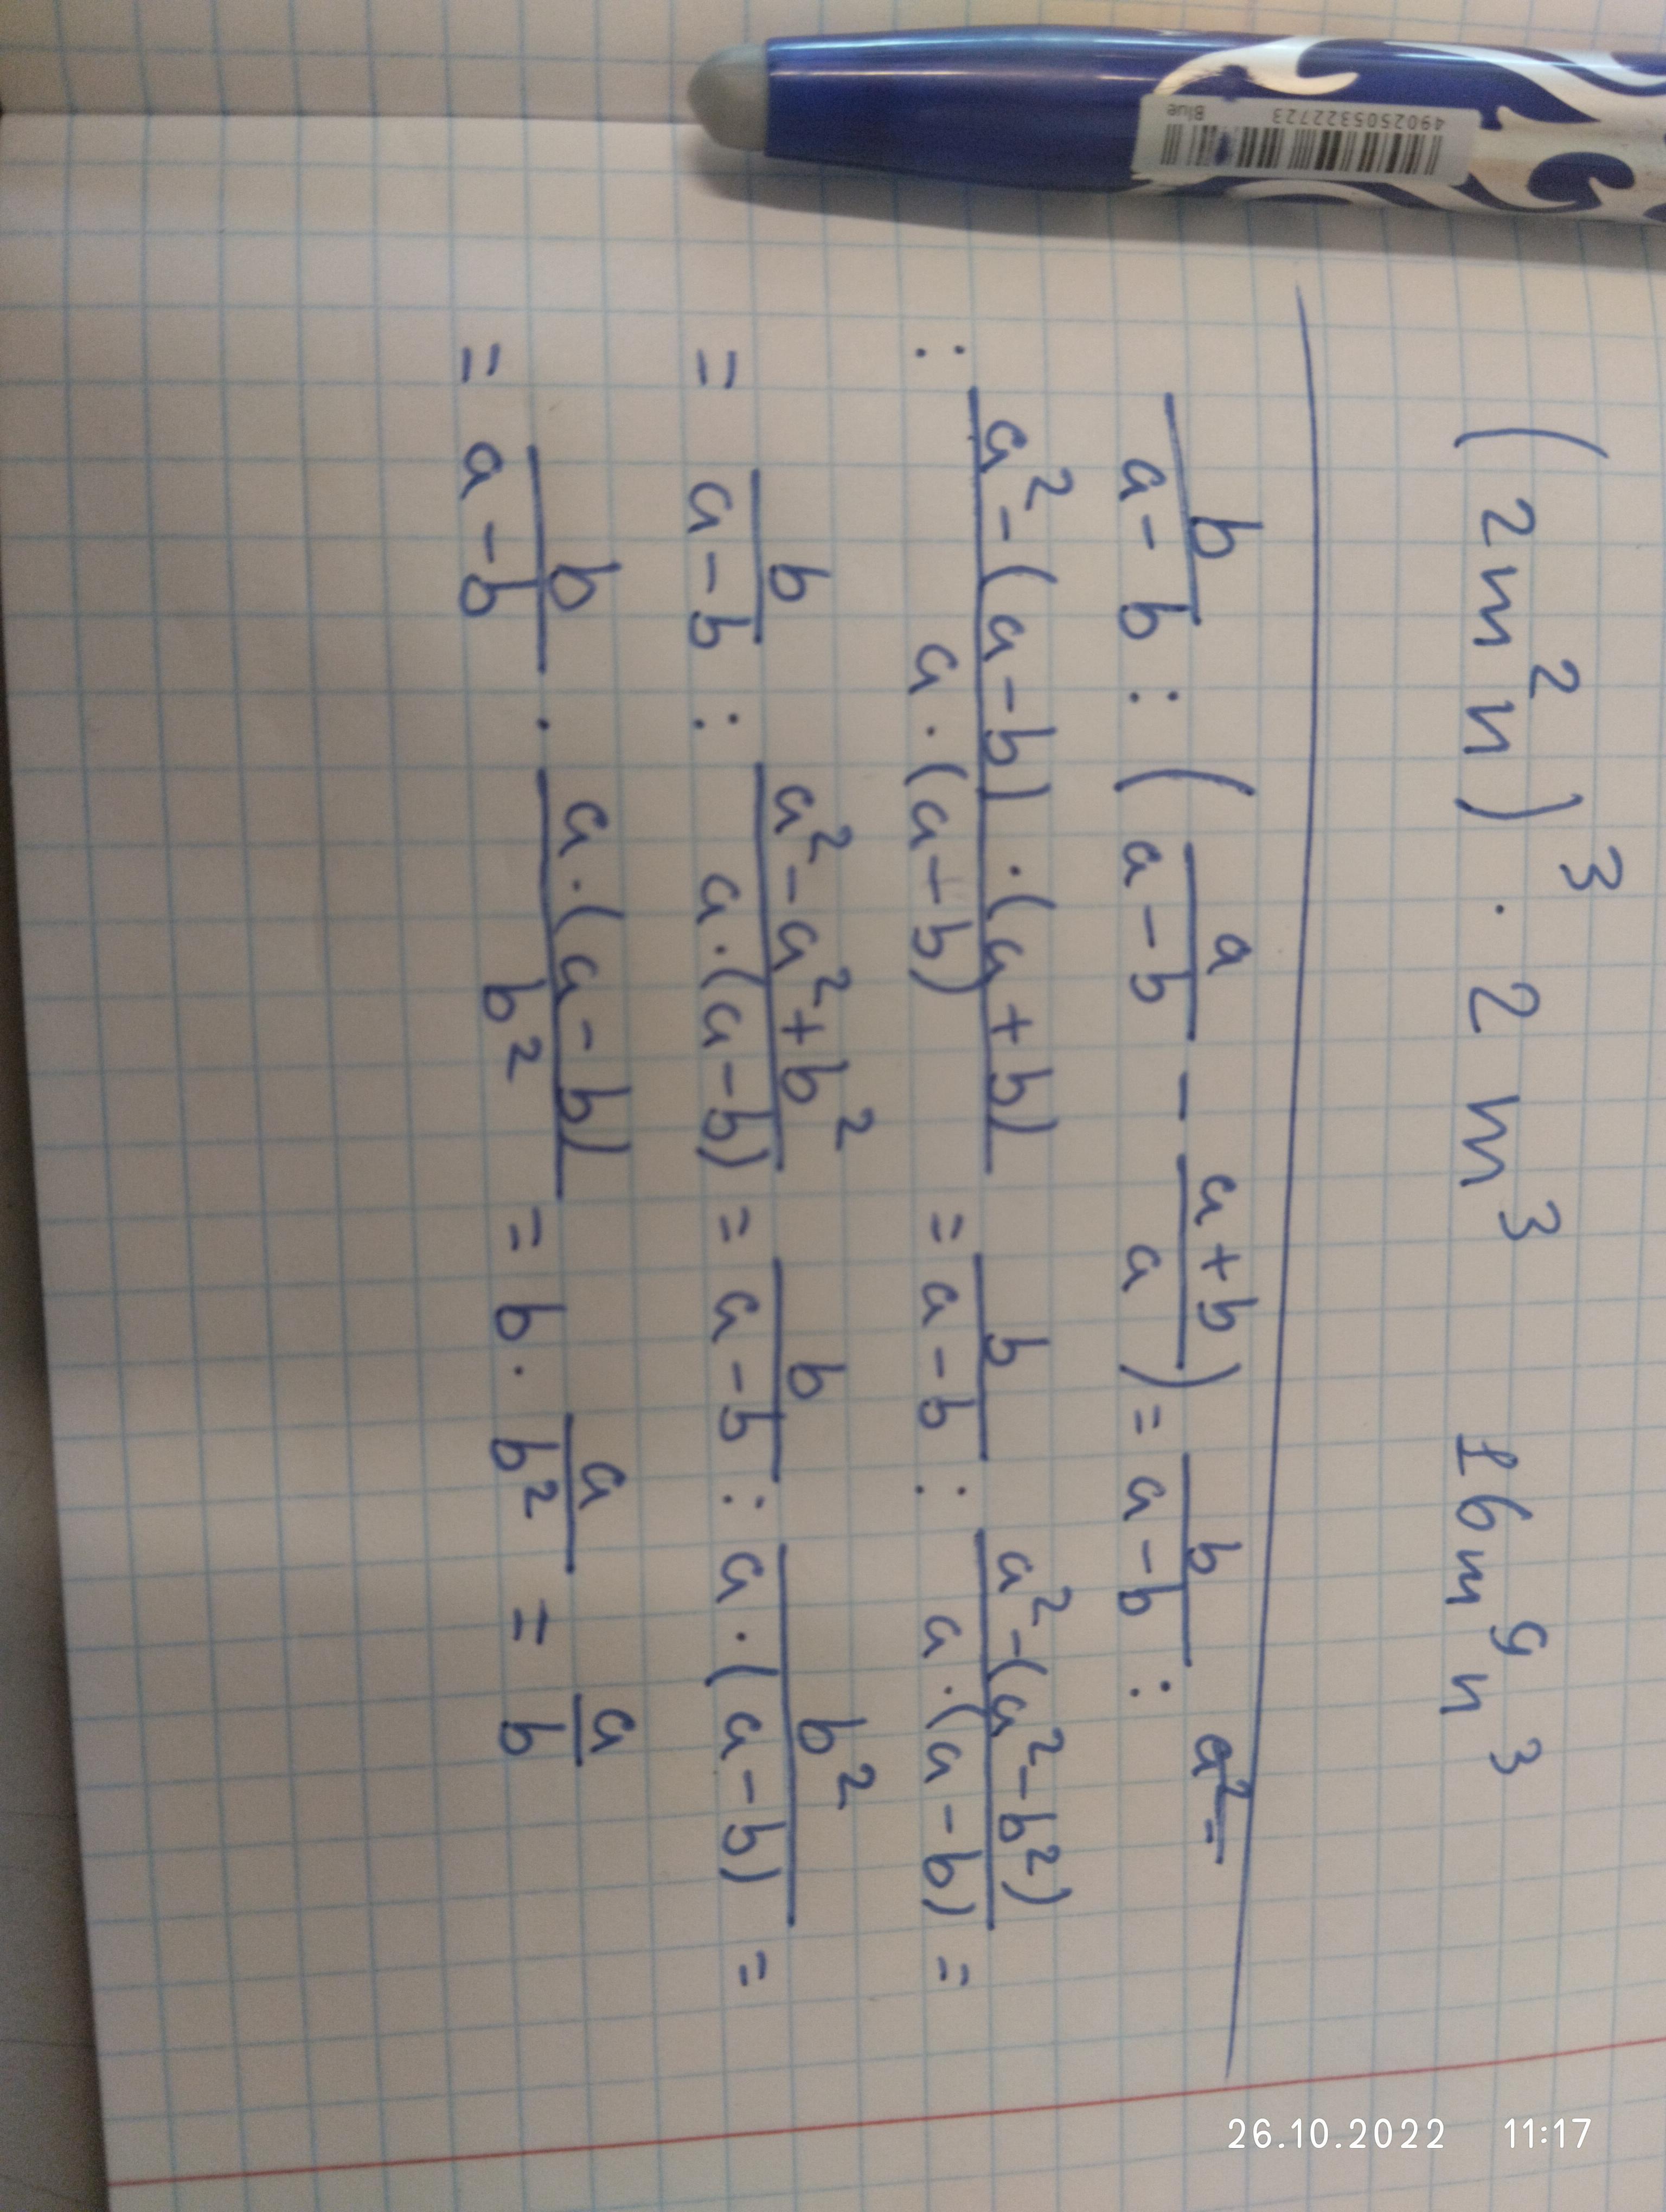 4902505322723 Blue
(2m²n)³ · 2m³ 16m⁹n³
b/(a-b) : (a/(a-b) - (a+b)/a) = b/(a-b) : a²-
: (a²-(a-b)·(a+b))/(a·(a+b)) = b/(a-b) : (a²-(a²-b²))/(a·(a-b)) =
= b/(a-b) : (a²-a²+b²)/(a·(a-b)) = b/(a-b) : b²/(a·(a-b)) =
= b/(a-b) · (a·(a-b))/b² = b · a/b² = a/b
26.10.2022 11:17